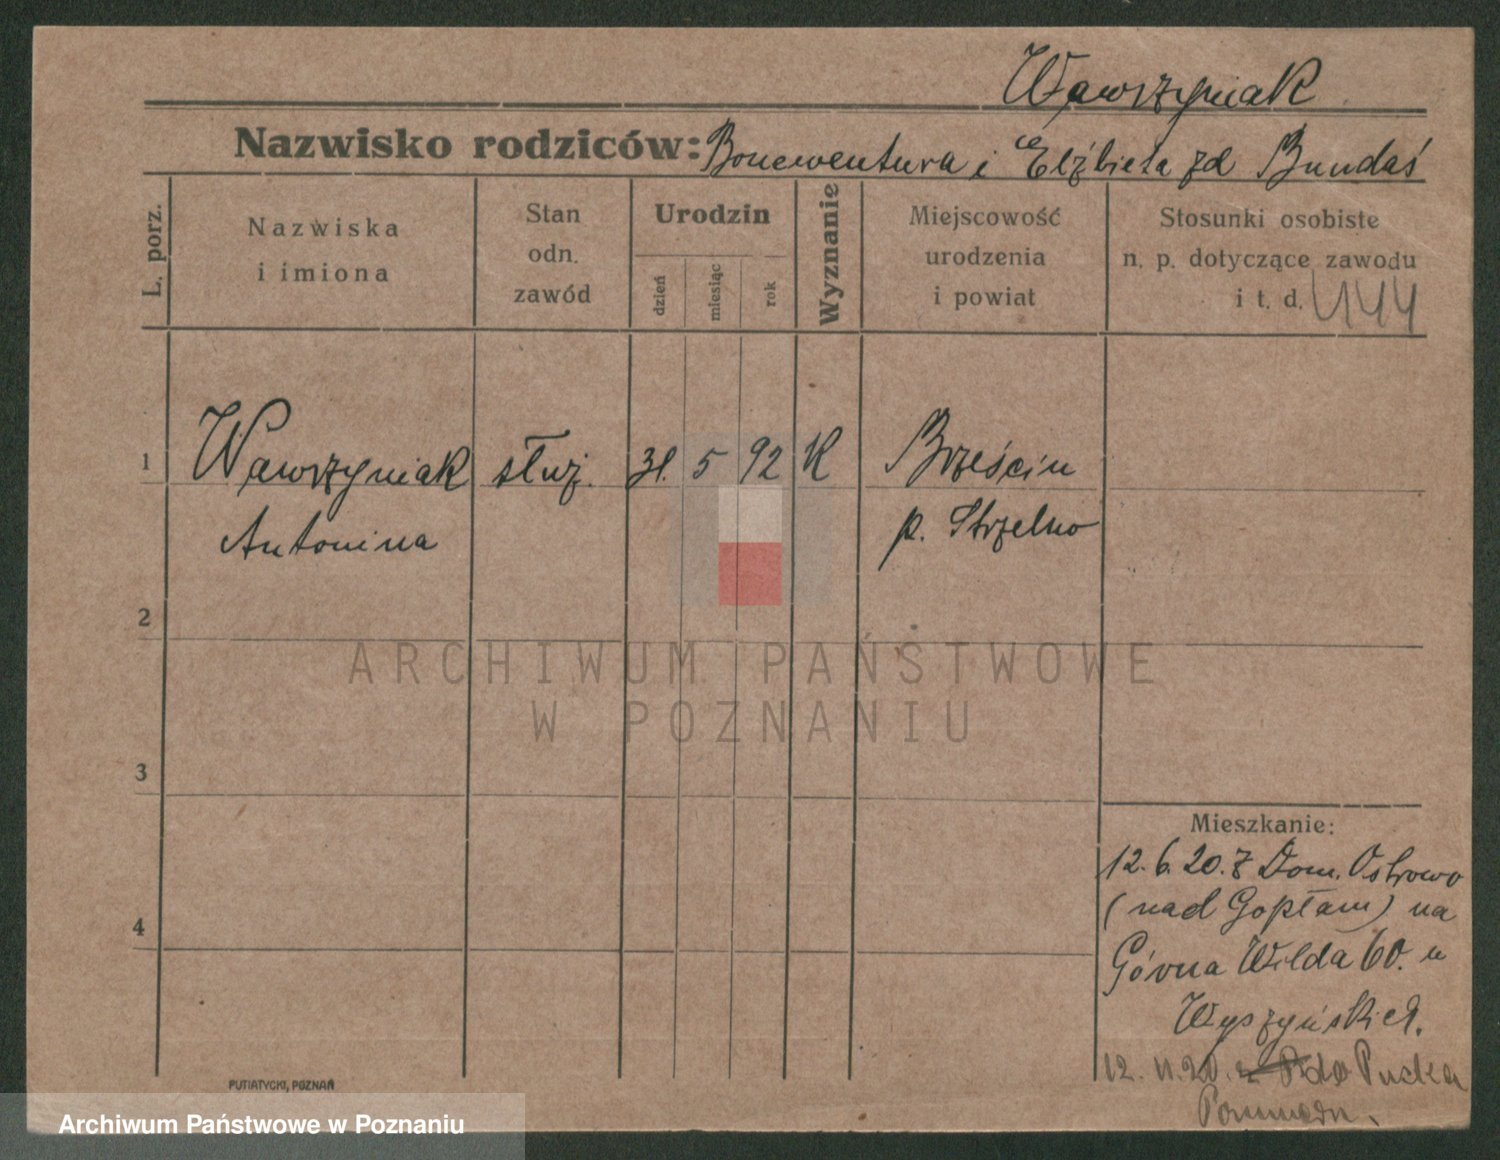 Wawrzyniak
Nazwisko rodziców: Bonawentura i Elżbieta zd Bundaś
L. porz.
Nazwiska
i imiona
Stan
odn.
zawód
Urodzin
dzień
miesiąc
rok
Wyznanie
Miejscowość
urodzenia
i powiat
Stosunki osobiste
n. p. dotyczące zawodu
i t. d.
1 Wawrzyniak służ. 31. 5 92 K Brześciu
Antonina p. Strzelno
2
ARCHIWUM PAŃSTWOWE
W POZNANIU
3
4
Mieszkanie:
12. 6. 20. z Dom. Ostrowo
(nad Gopłam) na
Górna Wilda 60. u
Wyszyńskich.
12. 11. 20. do Pucka
PUTIATYCKI, POZNAŃ
Archiwum Państwowe w Poznaniu